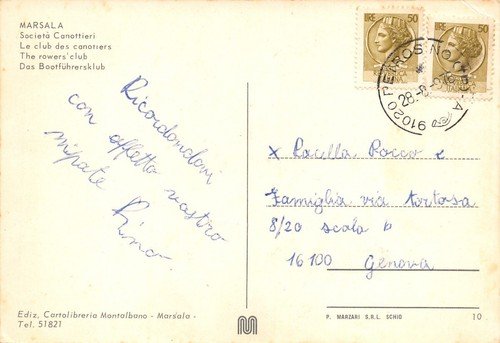 MARSALA
Società Canottieri
Le club des canotiers
The rowers'club
Das Bootführersklub
LIRE 50
LIRE 50
91020 PETROSINO
28-8-
Ricordandovi
con affetto vostro
nipote
Rino.
x Pacilla Rocco e
Famiglia via tortosa
8/20 scala D
16100 Genova
Ediz. Cartolibreria Montalbano - Marsala -
Tel. 51821
P. MARZARI S.R.L. SCHIO
10